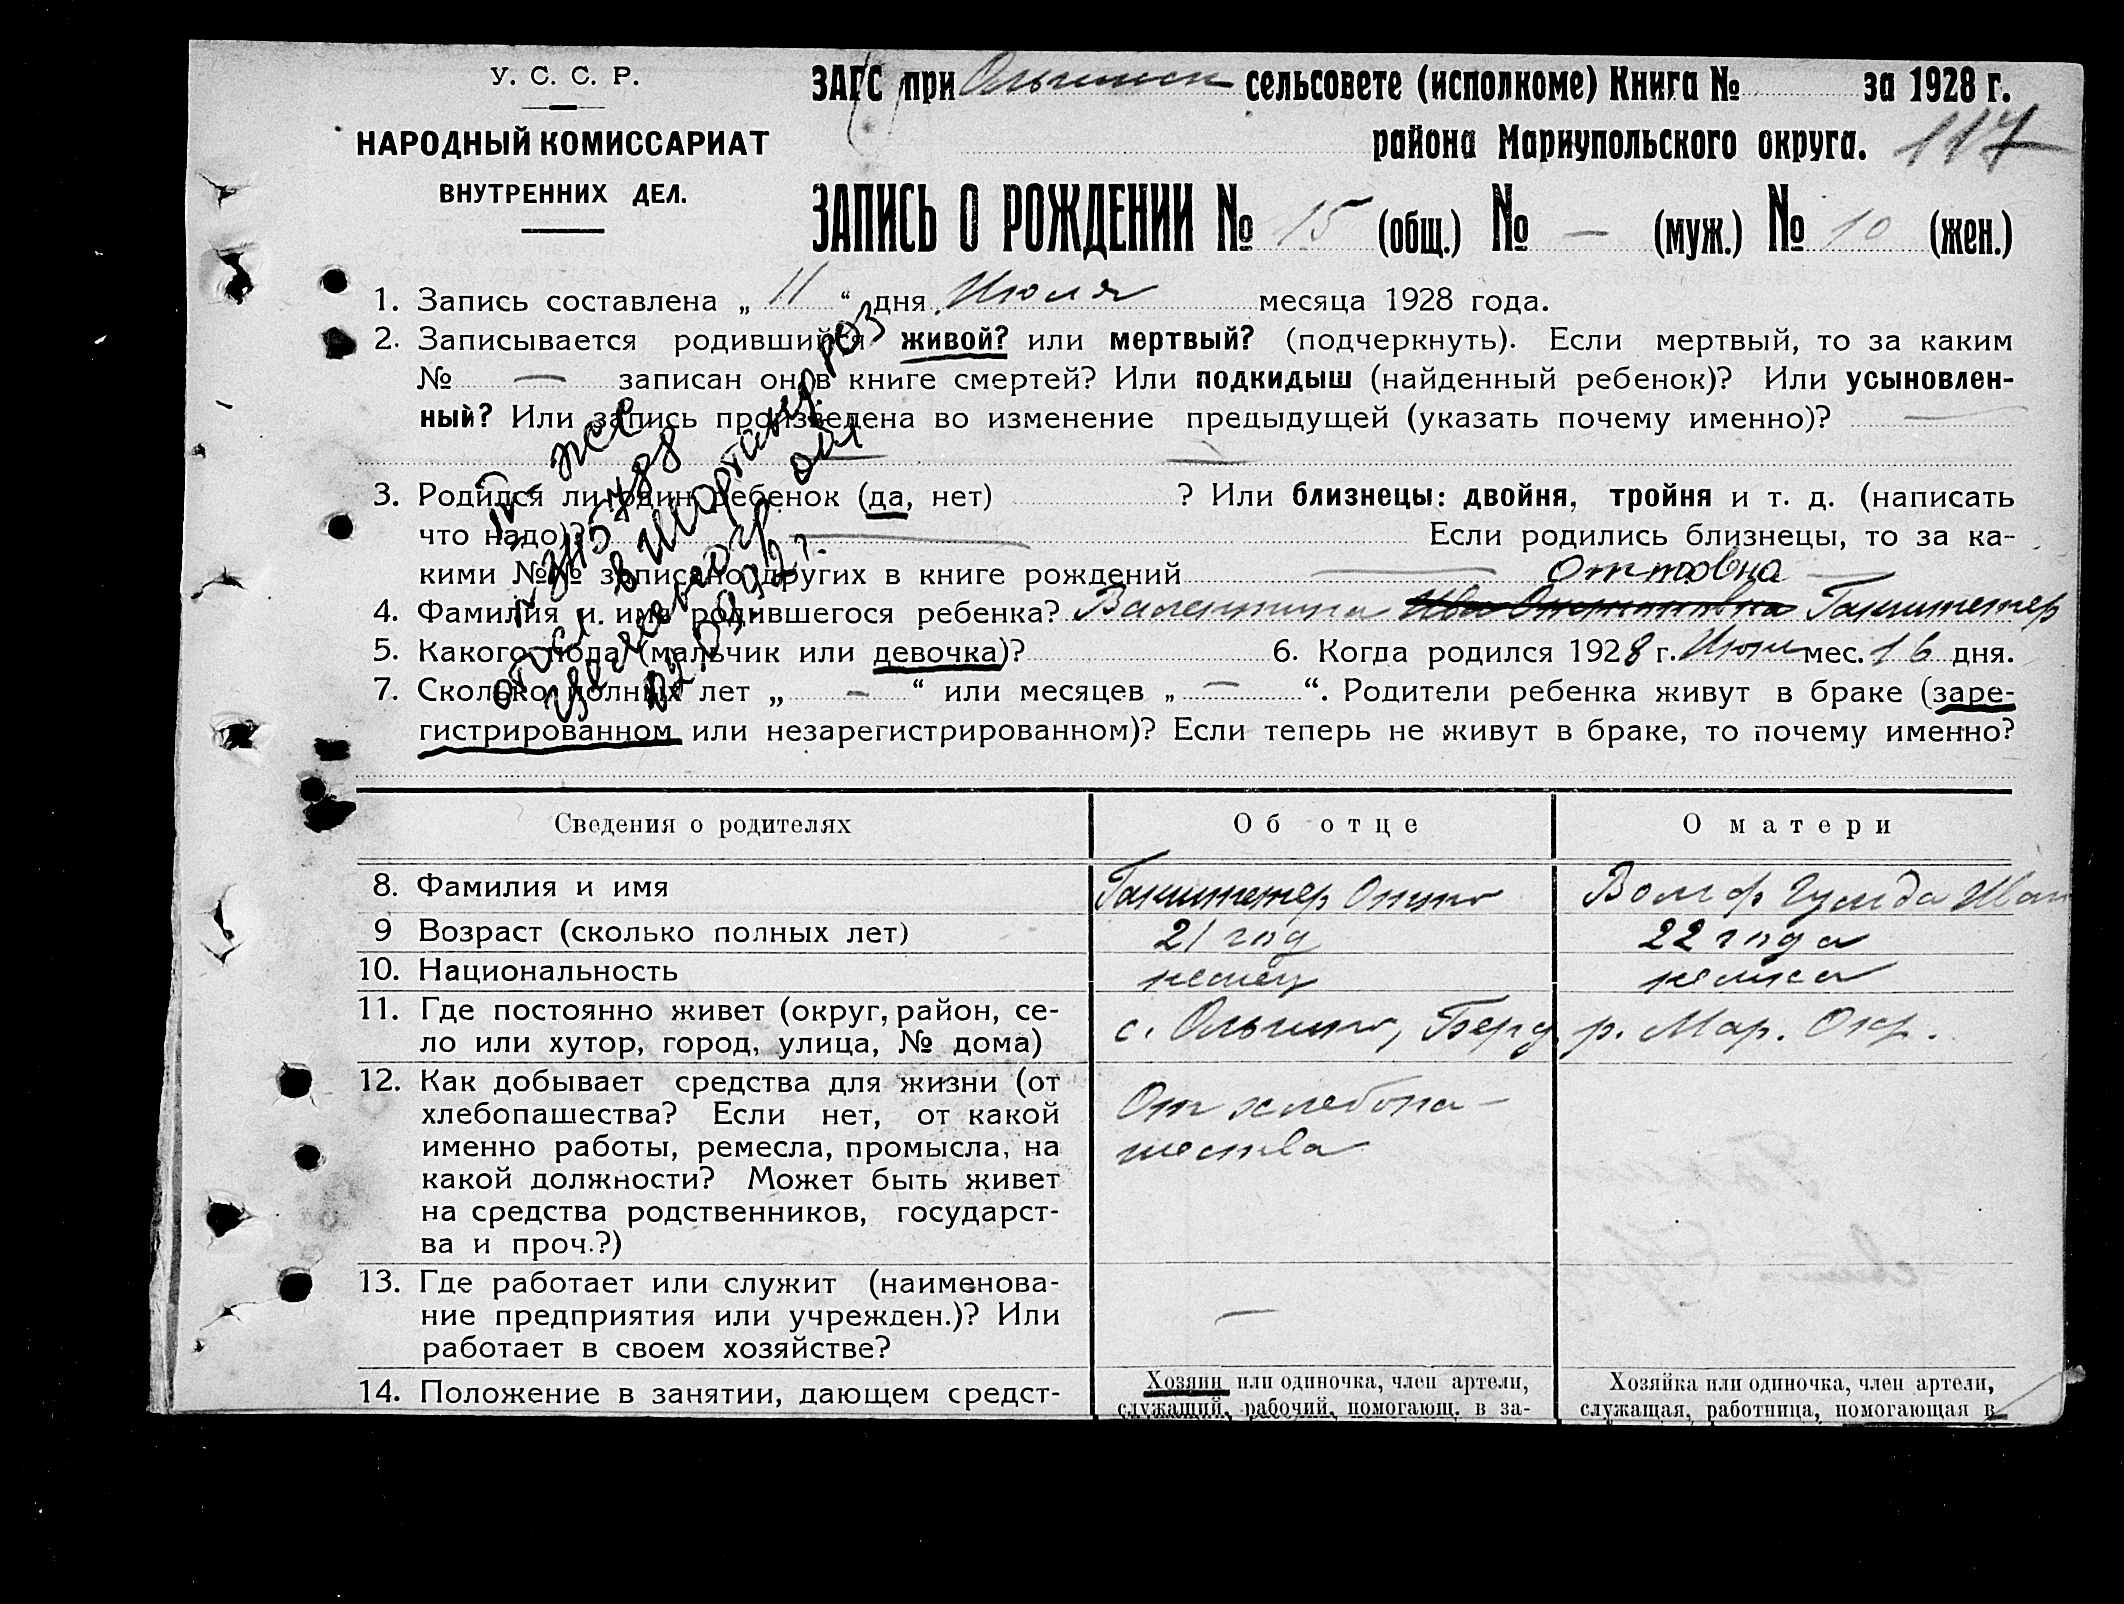 У. С. С. Р.
НАРОДНЫЙ КОМИССАРИАТ
ВНУТРЕННИХ ДЕЛ.
ЗАГС при Ольгинск сельсовете (исполкоме) Книга № за 1928 г.
района Мариупольского округа. 117
ЗАПИСЬ О РОЖДЕНИИ № 15 (общ.) № — (муж.) № 10 (жен.)
1. Запись составлена „ 11 “ дня Июля месяца 1928 года.
2. Записывается родившийся живой? или мертвый? (подчеркнуть). Если мертвый, то за каким
№ — записан он в книге смертей? Или подкидыш (найденный ребенок)? Или усыновлен-
ный? Или запись произведена во изменение предыдущей (указать почему именно)? —
3. Родился ли один ребенок (да, нет) ? Или близнецы: двойня, тройня и т. д. (написать
что надо)? — Если родились близнецы, то за ка-
кими №№ записано других в книге рождений —
Оттовна
4. Фамилия и имя родившегося ребенка? Валентина Ганштетер
5. Какого пола (мальчик или девочка)? 6. Когда родился 1928 г. Июн мес. 16 дня.
7. Сколько полных лет „ — “ или месяцев „ — “. Родители ребенка живут в браке (заре-
гистрированном или незарегистрированном)? Если теперь не живут в браке, то почему именно?
же
в
02.09.92 г.
Сведения о родителях Об отце О матери
8. Фамилия и имя Ганштетер Отто Вольф Гульда Иван
9 Возраст (сколько полных лет) 21 год 22 года
10. Национальность немец немка
11. Где постоянно живет (округ, район, се-
ло или хутор, город, улица, № дома) с. Ольгино, Берд. р. Мар. Окр.
12. Как добывает средства для жизни (от
хлебопашества? Если нет, от какой
именно работы, ремесла, промысла, на
какой должности? Может быть живет
на средства родственников, государст-
ва и проч.?)
От хлебопа-
шества
13. Где работает или служит (наименова-
ние предприятия или учрежден.)? Или
работает в своем хозяйстве?
—
14. Положение в занятии, дающем средст-
Хозяин или одиночка, член артели,
служащий, рабочий, помогающ. в за-
Хозяйка или одиночка, член артели,
служащая, работница, помогающая в